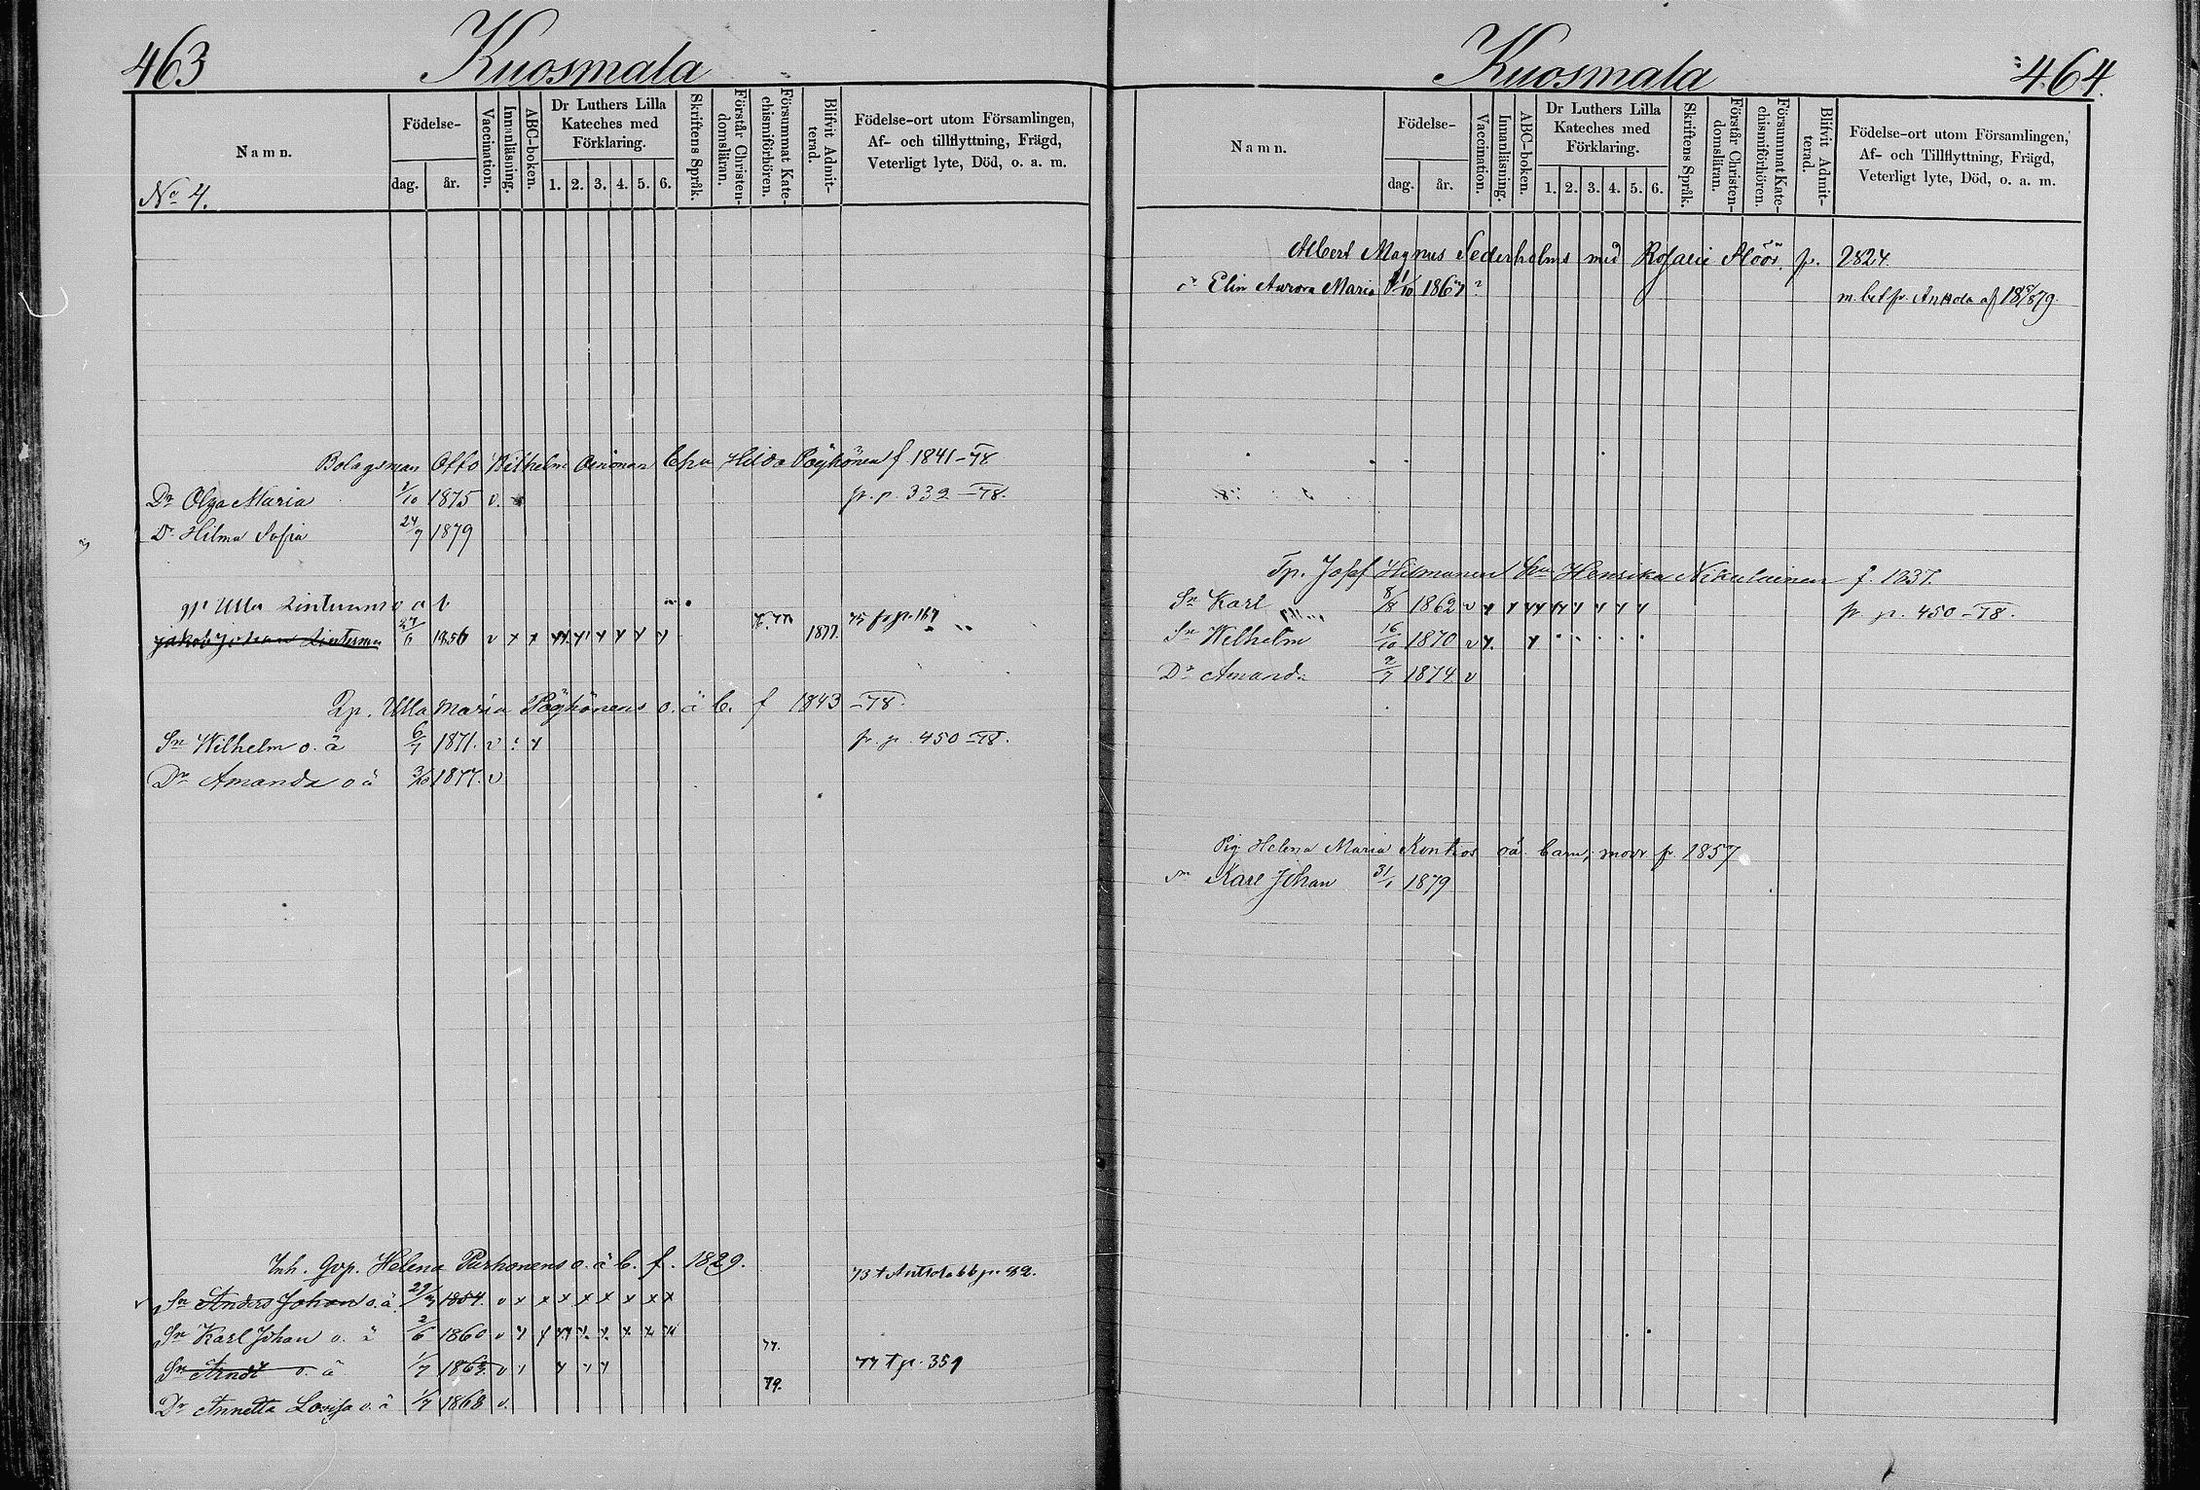 463 Kuosmala
Namn. Födelse- dag. år. Vaccination. Innanläsning. ABC-boken. Dr Luthers Lilla Kateches med Förklaring. 1. 2. 3. 4. 5. 6. Skriftens Språk. Förstår Christendomsläran. Försummat Katechismiförhören. Blifvit Admitterad. Födelse-ort utom Församlingen, Af- och tillflyttning, Frägd, Veterligt lyte, Död, o. a. m.
No 4.
Bolagsman Otto Vilhelm Hilda Pöyhönen f. 1841 -78
Dr Olga Maria 1/10 1875 v. fr. p. 332 -78.
Dr Hilma Sofia 24/7 1879
Ulla Lintunens
Jakob Johan Lintunen 1856 v x x 1877. 75
Ulla Maria Pöyhönens o. ä b. f 1843 -78.
Sn Wilhelm o. ä 6/7 1871. v fr. p. 450 -78.
Dr Amanda o ä 3/10 1877. v
Inh. Gvp. Helena Purhonens o. ä b. f. 1829.
Sn Anders Johan o. ä 1854. v x x x x x x x x 73
Sn Karl Johan o. ä 2/6 1860 v 77.
Sn Andt o. ä 1/7 1863. v 77 t p. 351
Dr Annetta Lovisa o. ä 1/7 1868 v. 79.
Kuosmala 464.
Namn. Födelse- dag. år. Vaccination. Innanläsning. ABC-boken. Dr Luthers Lilla Kateches med Förklaring. 1. 2. 3. 4. 5. 6. Skriftens Språk. Förstår Christendomsläran. Försummat Katechismiförhören. Blifvit Admitterad. Födelse-ort utom Församlingen, Af- och Tillflyttning, Frägd, Veterligt lyte, Död, o. a. m.
Albert Magnus Sederholms med Rosalie Höör f.
Elin Aurora Maria 1867 m. bet fr.
Josef Hilmanen Henrika Nikulainen f. 1837.
Sn Karl 8/8 1862 v fr. p. 450 -78.
Sn Wilhelm 16/10 1870 v
Dr Amanda 2/7 1874 v
Pig. Helena Maria Kontros oä. barn; modr f. 1857
Sn Karl Johan 31/1 1879